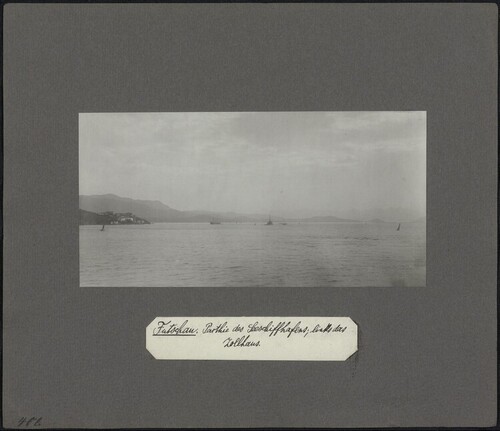 Futschau. Parthie des Seeschiffhafens; links das
Zollhaus.